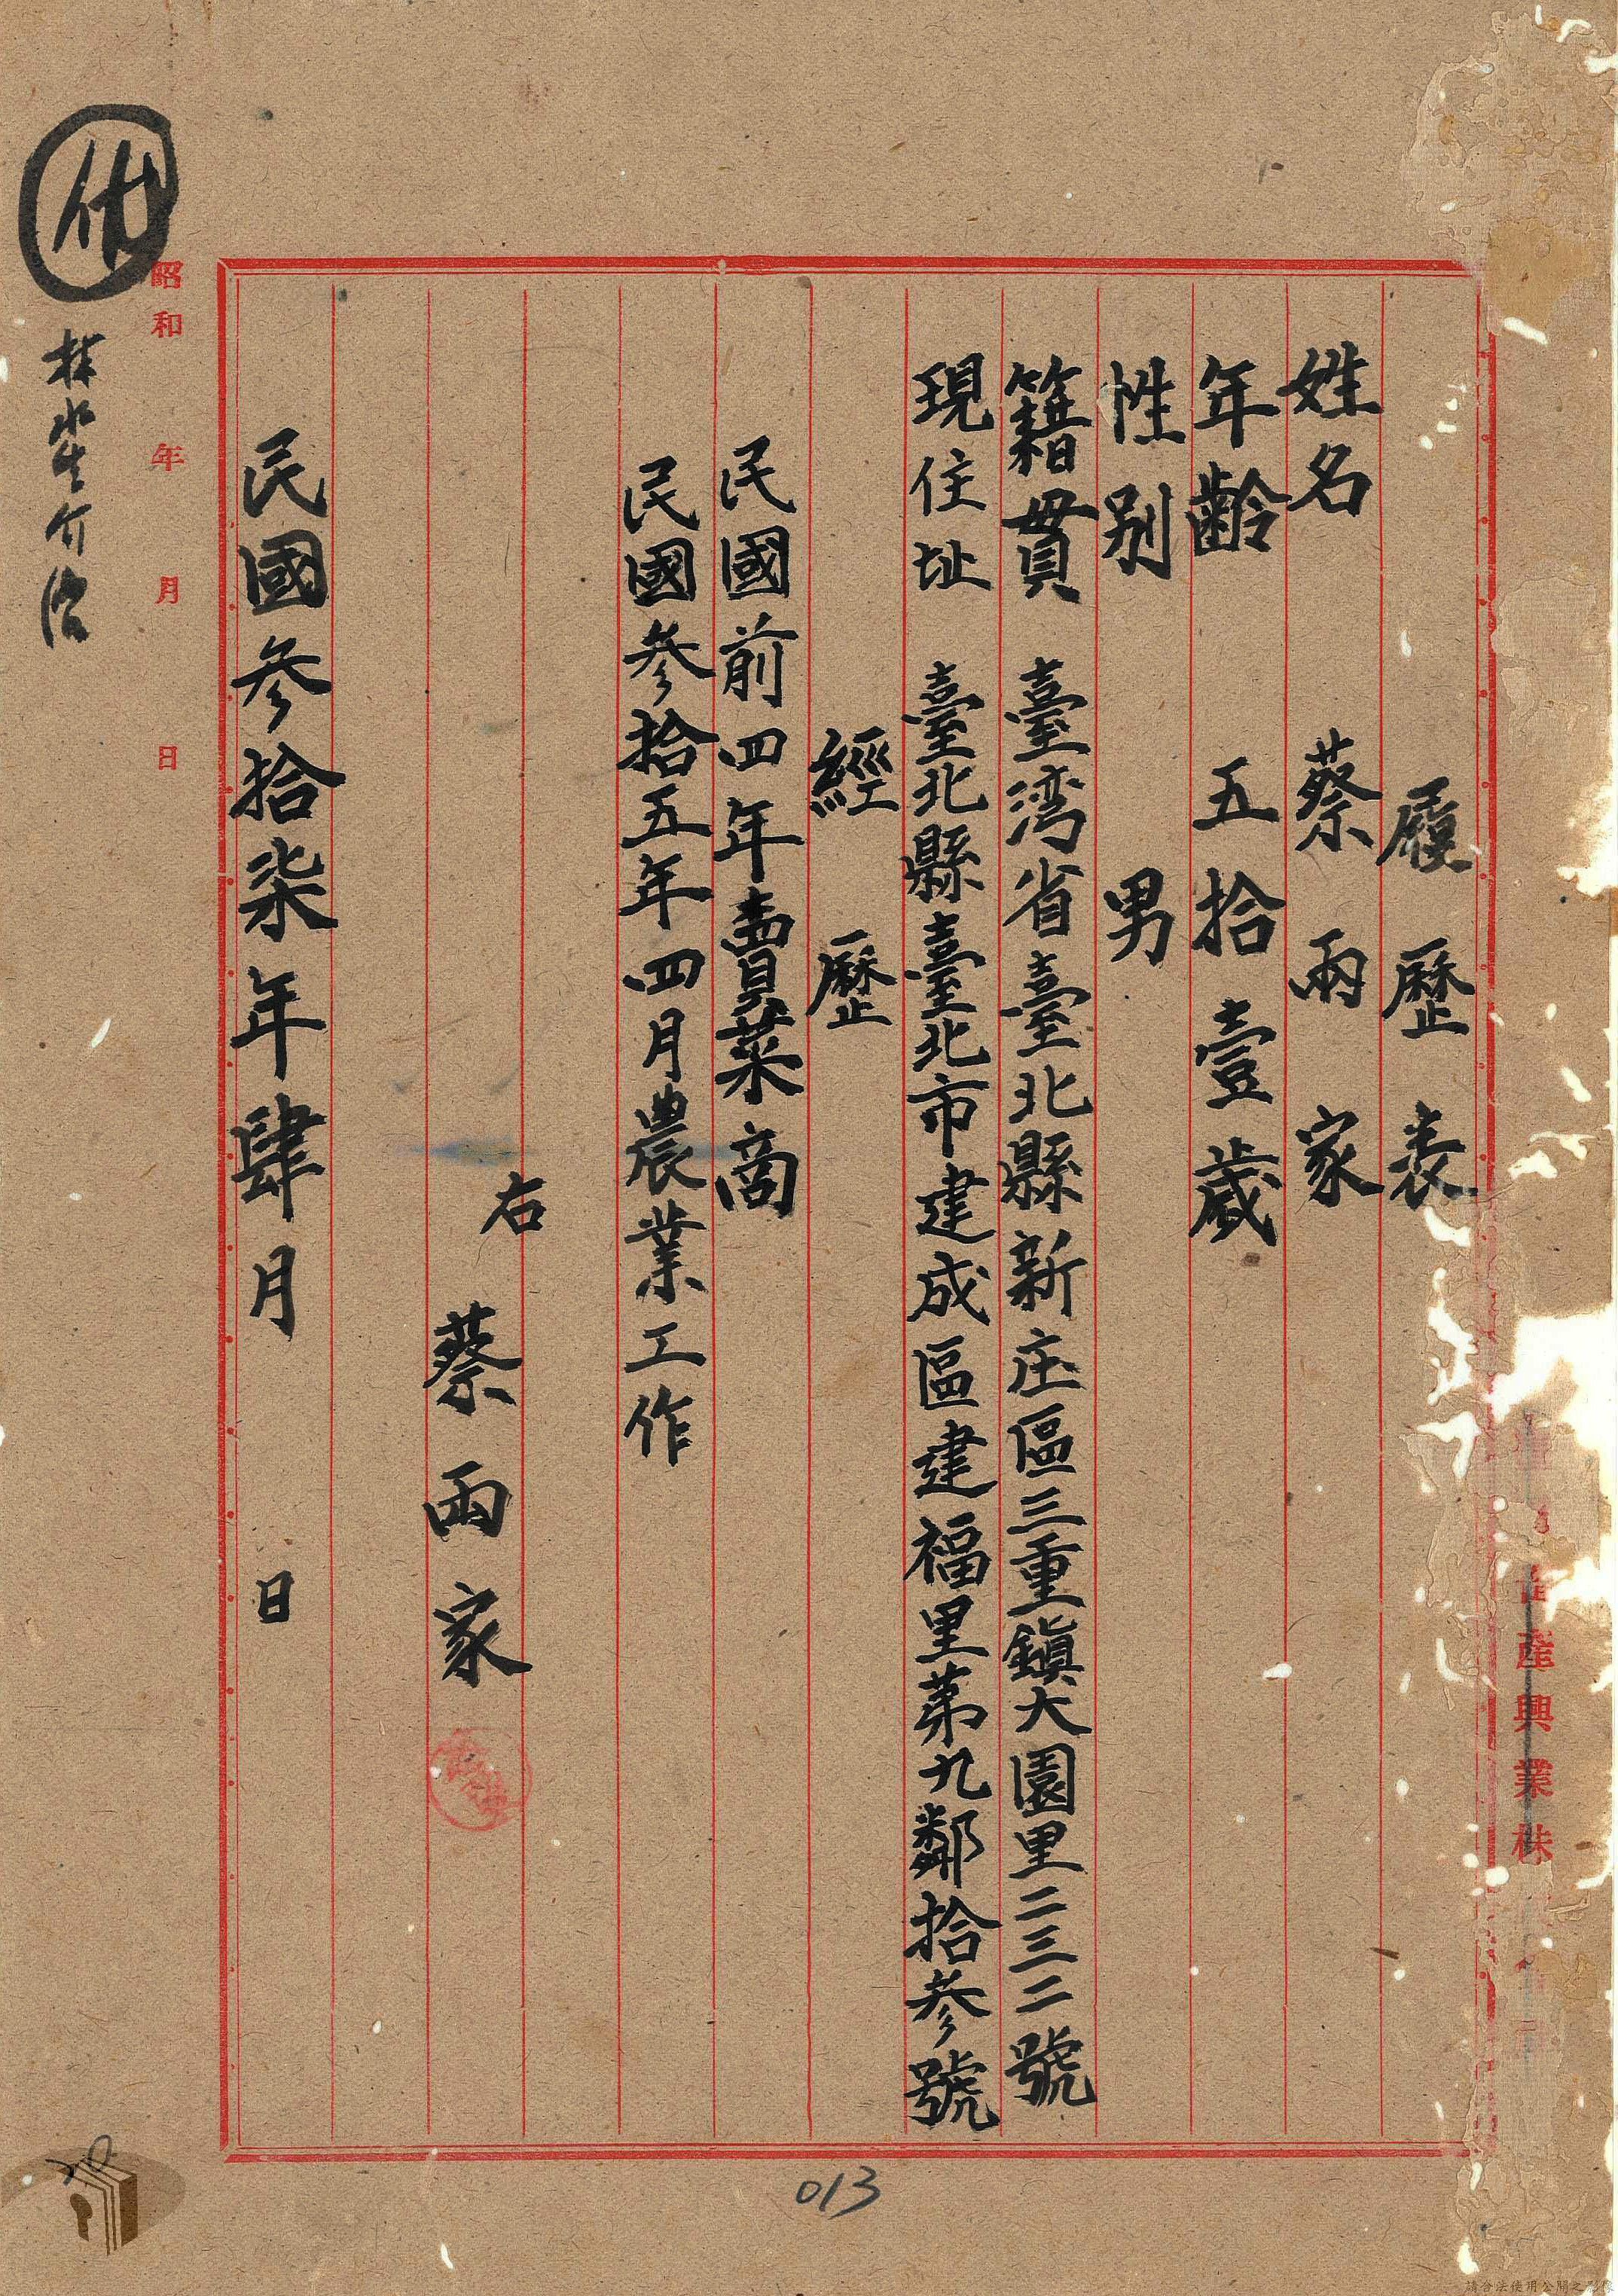 履歷表
姓名 蔡雨家
年齡 五拾壹歲
性別 男
籍貫 臺湾省臺北縣新庄區三重鎮大園里二三二號
現住址 臺北縣臺北市建成區建福里第九鄰拾參號
經歷
民國前四年賣菓商
民國參拾五年四月農業工作
右
蔡雨家
民國參拾柒年肆月 日
昭和 年 月 日
介紹
產興業株
013
20
請合法使用公開之影像